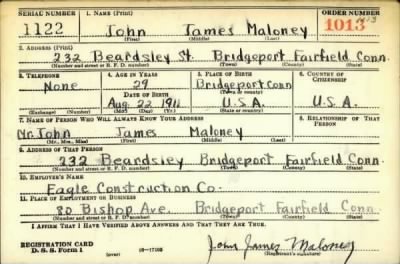 SERIAL NUMBER 1. NAME (Print) ORDER NUMBER
1122 John James Maloney 1013
(First) (Middle) (Last)
2. ADDRESS (Print)
232 Beardsley St. Bridgeport Fairfield Conn.
(Number and street or R. F. D. number) (Town) (County) (State)
3. TELEPHONE 4. AGE IN YEARS 5. PLACE OF BIRTH 6. COUNTRY OF CITIZENSHIP
None 29 Bridgeport, Conn
DATE OF BIRTH (Town or county)
Aug. 22 1911 U.S.A. U.S.A.
(Exchange) (Number) (Mo.) (Day) (Yr.) (State or country)
7. NAME OF PERSON WHO WILL ALWAYS KNOW YOUR ADDRESS 8. RELATIONSHIP OF THAT PERSON
Mr. John James Maloney
(Mr., Mrs., Miss) (First) (Middle) (Last)
9. ADDRESS OF THAT PERSON
232 Beardsley Bridgeport Fairfield Conn.
(Number and street or R. F. D. number) (Town) (County) (State)
10. EMPLOYER'S NAME
Eagle Construction Co.
11. PLACE OF EMPLOYMENT OR BUSINESS
80 Bishop Ave. Bridgeport Fairfield Conn.
(Number and street or R. F. D. number) (Town) (County) (State)
I AFFIRM THAT I HAVE VERIFIED ABOVE ANSWERS AND THAT THEY ARE TRUE.
REGISTRATION CARD
D. S. S. Form 1 (over) 16-17105 John James Maloney